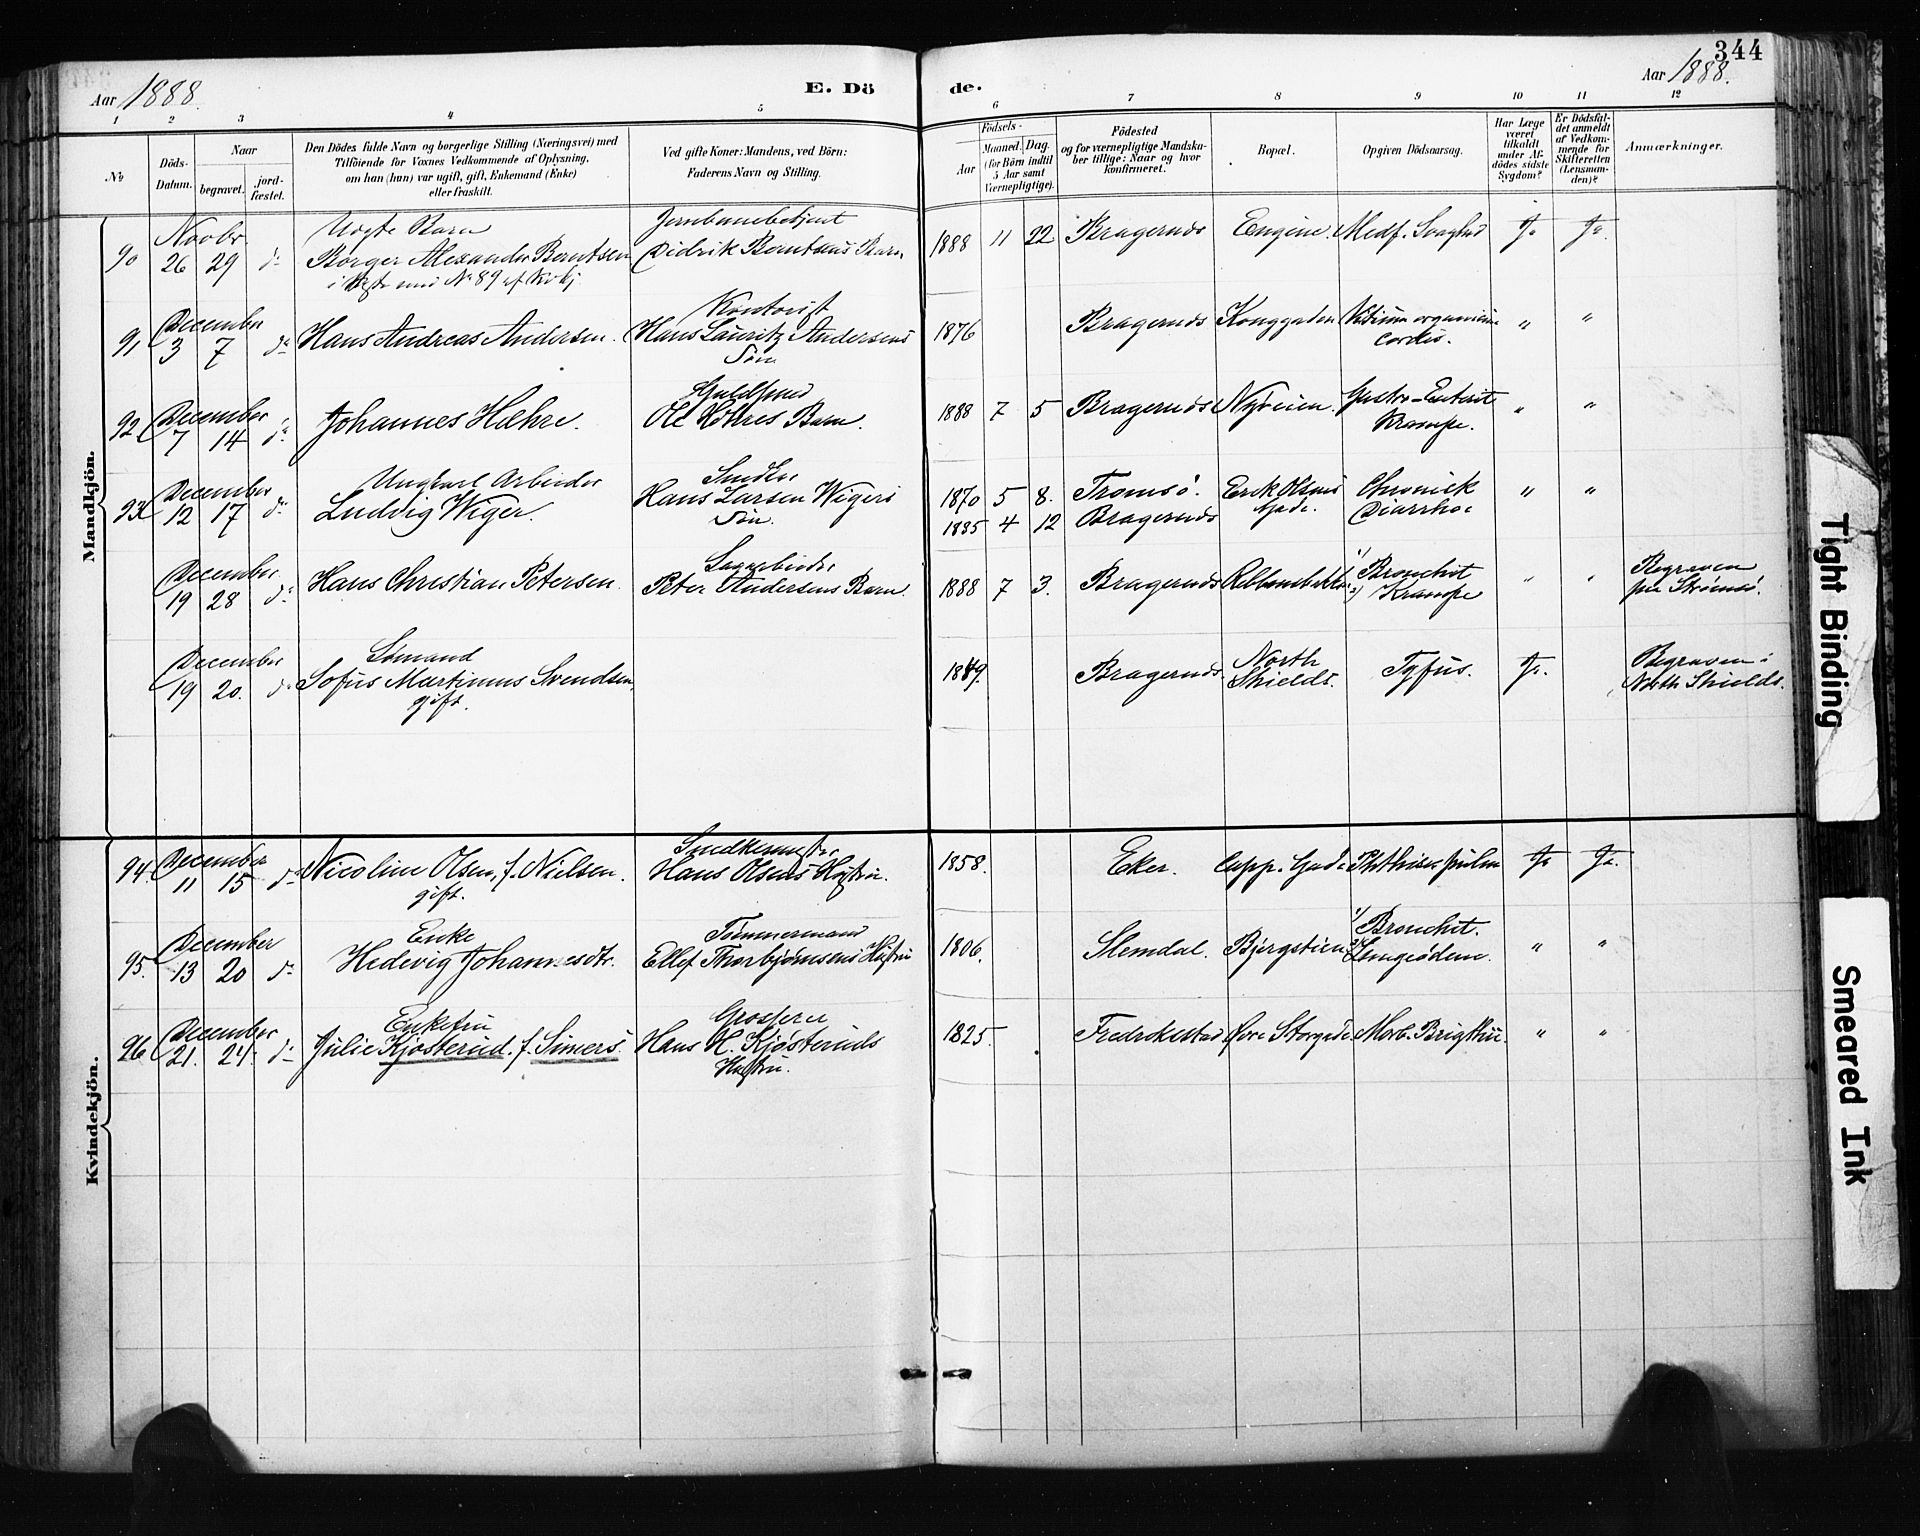 344
Aar 1888.
E. Dö
de.
Aar 1888.
1 2 3 4 5 6 7 8 9 10 11 12
No
Döds-
Datum.
Naar
begravet.
jord-
fæstet.
Den Dödes fulde Navn og borgerlige Stilling (Næringsvei) med
Tilföiende for Voxnes Vedkommende af Oplysning,
om han (hun) var ugift, gift, Enkemand (Enke)
eller fraskilt.
Ved gifte Koner: Mandens, ved Börn:
Faderens Navn og Stilling.
Födsels-
Aar
Maaned. Dag.
(for Börn indtil
5 Aar samt
Værnepligtige).
Födested
og for værnepligtige Mandska-
ber tillige: Naar og hvor
konfirmeret.
Bopæl.
Opgiven Dödsaarsag.
Har Læge
været
tilkaldt
under Af-
dödes sidste
Sygdom?
Er Dödsfal-
det anmeldt
af Vedkom-
mende for
Skifteretten
(Lensman-
den)?
Anmærkninger.
Mandkjön.
Novbr Uægte Barn Jernbanebetjent
90 26 29 do Borger Alexander Berntsen Didrik Berntsens Barn 1888 11 22 Bragernæs Engene. Medf. Svaghed Ja Ja.
No 89 af
December Kontorist
91 3 7 do Hans Andreas Andersen. Hans Lauritz Andersens 1876 Bragernæs Konggaden Vitium organicum " "
Søn cordis.
December Guldsmed
92 7 14 do Johannes Hæhre. Ole Hæhres Barn. 1888 7 5 Bragernæs Nyveien. Gastro-Enterit " "
Krampe.
December Ungkarl Arbeider Snedker
93 12 17 do Ludvig Wiger. Hans Larsen Wigers 1870 5 8. Tromsö. Erik Olsens Chronisk " "
Søn. 1885 4 12 Bragernæs Gade. Diarrhoe
December Sagarbeider
19 28 do Hans Christian Petersen. Peter Andersens Barn. 1888 7 3. Bragernæs 1) Bronchit " " Begraven
2) Krampe paa Strømsø.
December Sømand
19 20. do Sofus Martinius Svendsen, 1849. Bragernæs. North Tyfus. Ja. Begraven i
gift. Shields. North Shields.
Kvindekjön.
December Snedkermester
94. 11 15 do Nicoline Olsen, f. Nielsen. Hans Olsens Hustru. 1858. Eker. Capp. Gade Phthisis pulm Ja Ja.
gift.
December Enke Tømmermand
95. 13 20 do Hedevig Johannesdtr. Ellef Thorbjørnsens Hustru 1806. Slemdal. Bjergstien 1) Bronchit.
2) Lungeödem. " "
December Enkefru Grosserer
96 21. 24. do Julie Kjøsterud. f. Simers. Hans H. Kjøsteruds 1825. Fredrikstad Øvre Storgade Morb. Brigthii. " "
Hustru.
Tight Binding
Smeared Ink